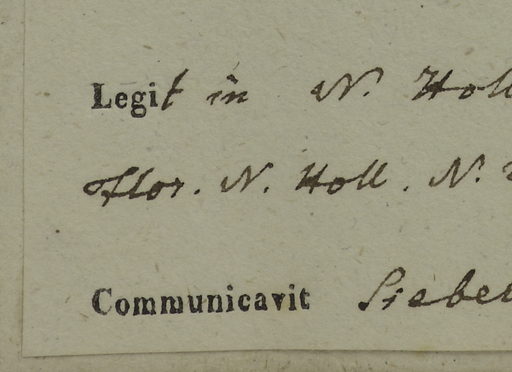 Legit in N. Holl
Flor. N. Holl. N.
Communicavit Sieber